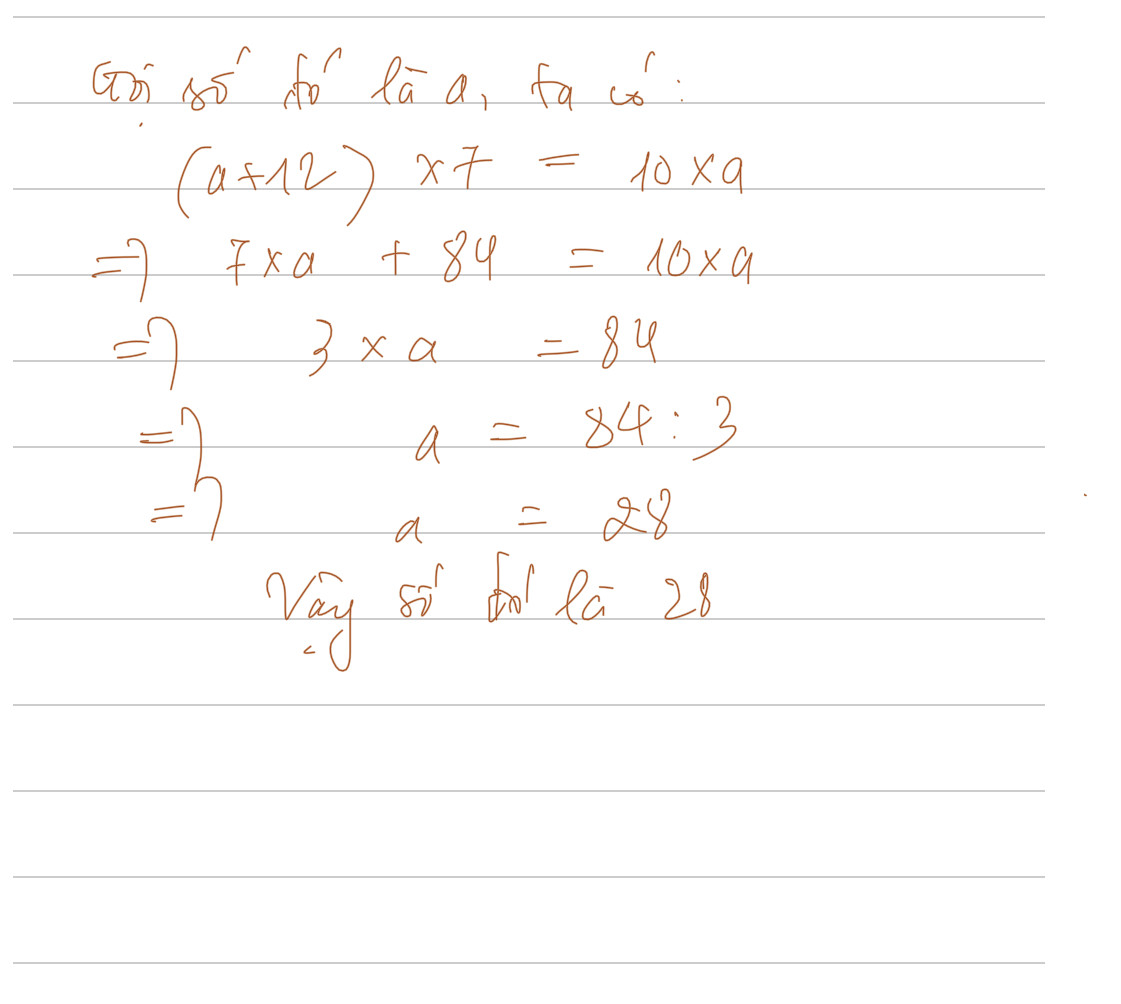 Gọi số đó là a, ta có:
(a+12) x 7 = 10 x a
=> 7 x a + 84 = 10 x a
=> 3 x a = 84
=> a = 84 : 3
=> a = 28
Vậy số đó là 28